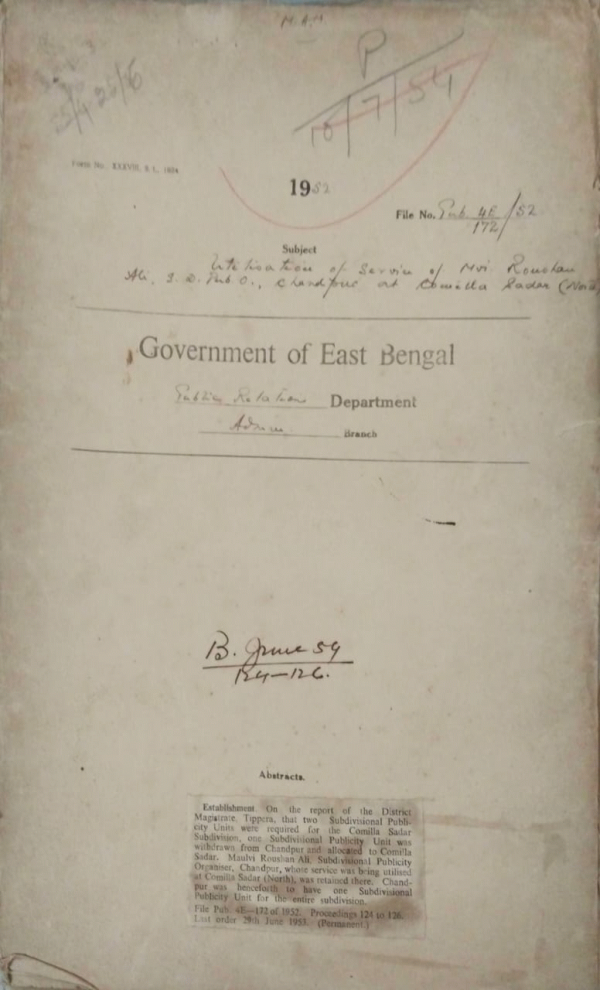 P
10/7/54
Form No. XXXVIII, S 1, 1894
1952
File No. Pub. 4E/172/52
Subject
Utilisation of Service of Mvi Roushan
Ali, S. D. Pub. O., Chandpur at Comilla Sadar (North)
Government of East Bengal
Public Relations Department
Admn. Branch
B. June 54
124-126.
Abstracts.
Establishment. On the report of the District
Magistrate, Tippera, that two Subdivisional Publi-
city Units were required for the Comilla Sadar
Subdivision, one Subdivisional Publicity Unit was
withdrawn from Chandpur and allocated to Comilla
Sadar. Maulvi Roushan Ali, Subdivisional Publicity
Organiser, Chandpur, whose service was being utilised
at Comilla Sadar (North), was retained there. Chand-
pur was henceforth to have one Subdivisional
Publicity Unit for the entire subdivision.
File Pub. 4E—172 of 1952. Proceedings 124 to 126.
Last order 29th June 1953. (Permanent.)